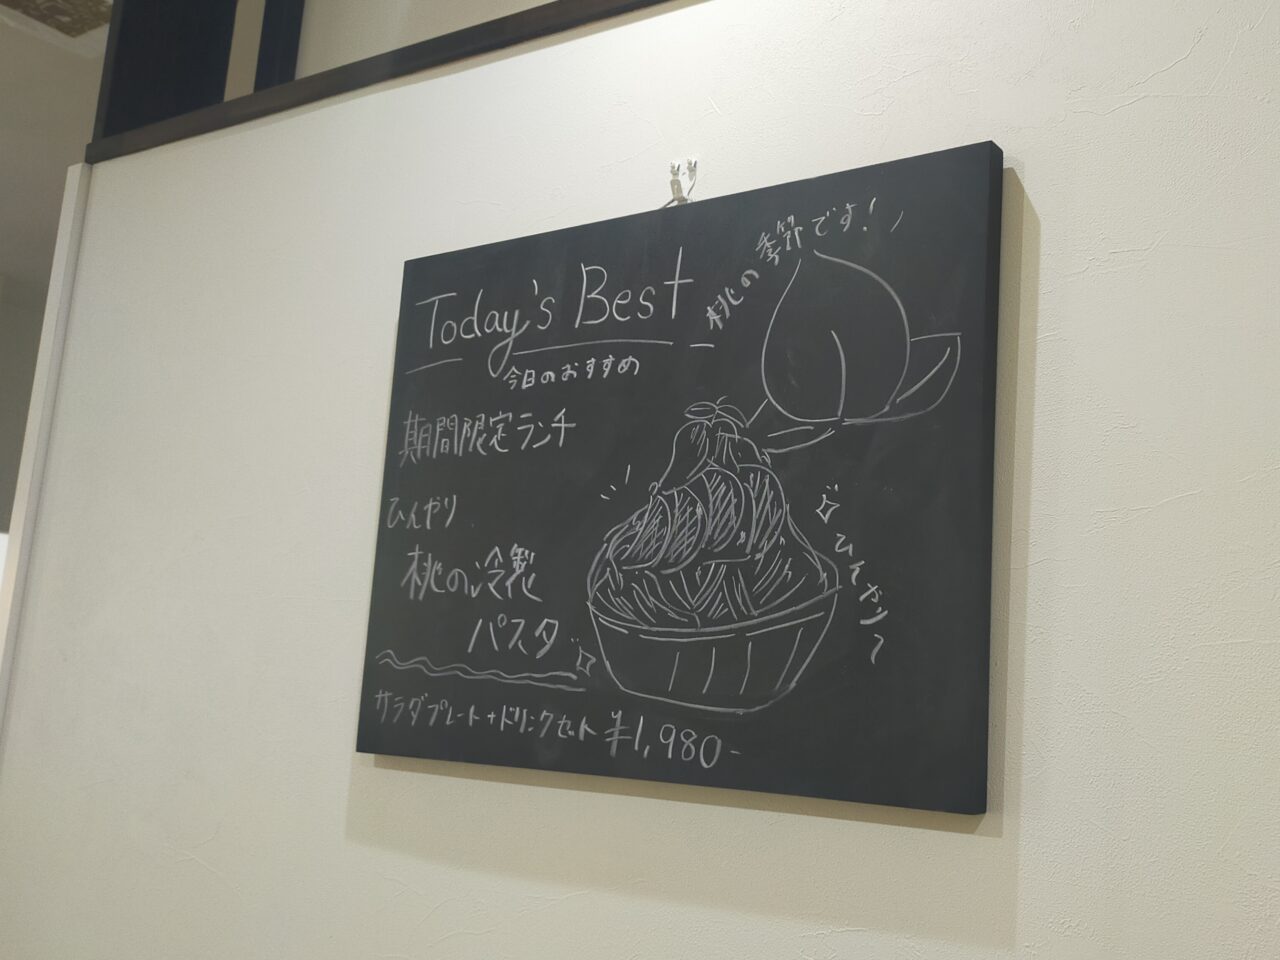 Today's Best
今日のおすすめ
桃の季節です!
期間限定ランチ
ひんやり
桃の冷製
パスタ
ひんやり〜
サラダプレート+ドリンクセット ¥1,980-